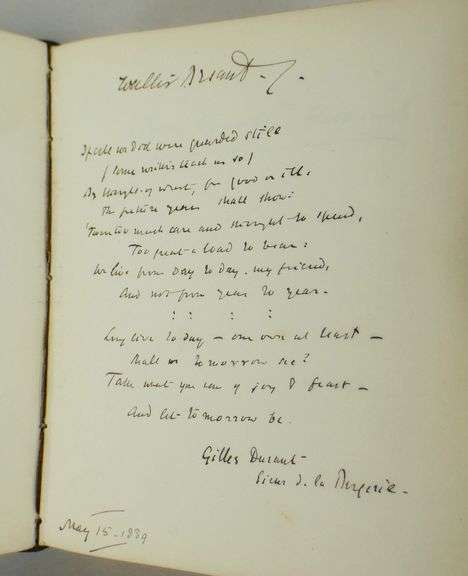 Walter Besant
we Did were guarded still
(Some writers teach us so)
By thought of what, for good or ill,
The future years shall show:
'Twere too much care and thought to spend,
Too great a load to bear:
We live from day to day, my friend,
And not from year to year.
: : : :
Long live to day – our own at least –
Shall we tomorrow see?
Take what you can of joy & feast –
And let tomorrow be.
Gilles Durant
Sieur d. la Bergerie.
May 15. 1889